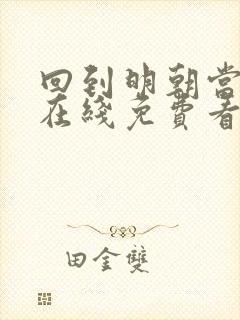 回到明朝当
在线免费看
田金双